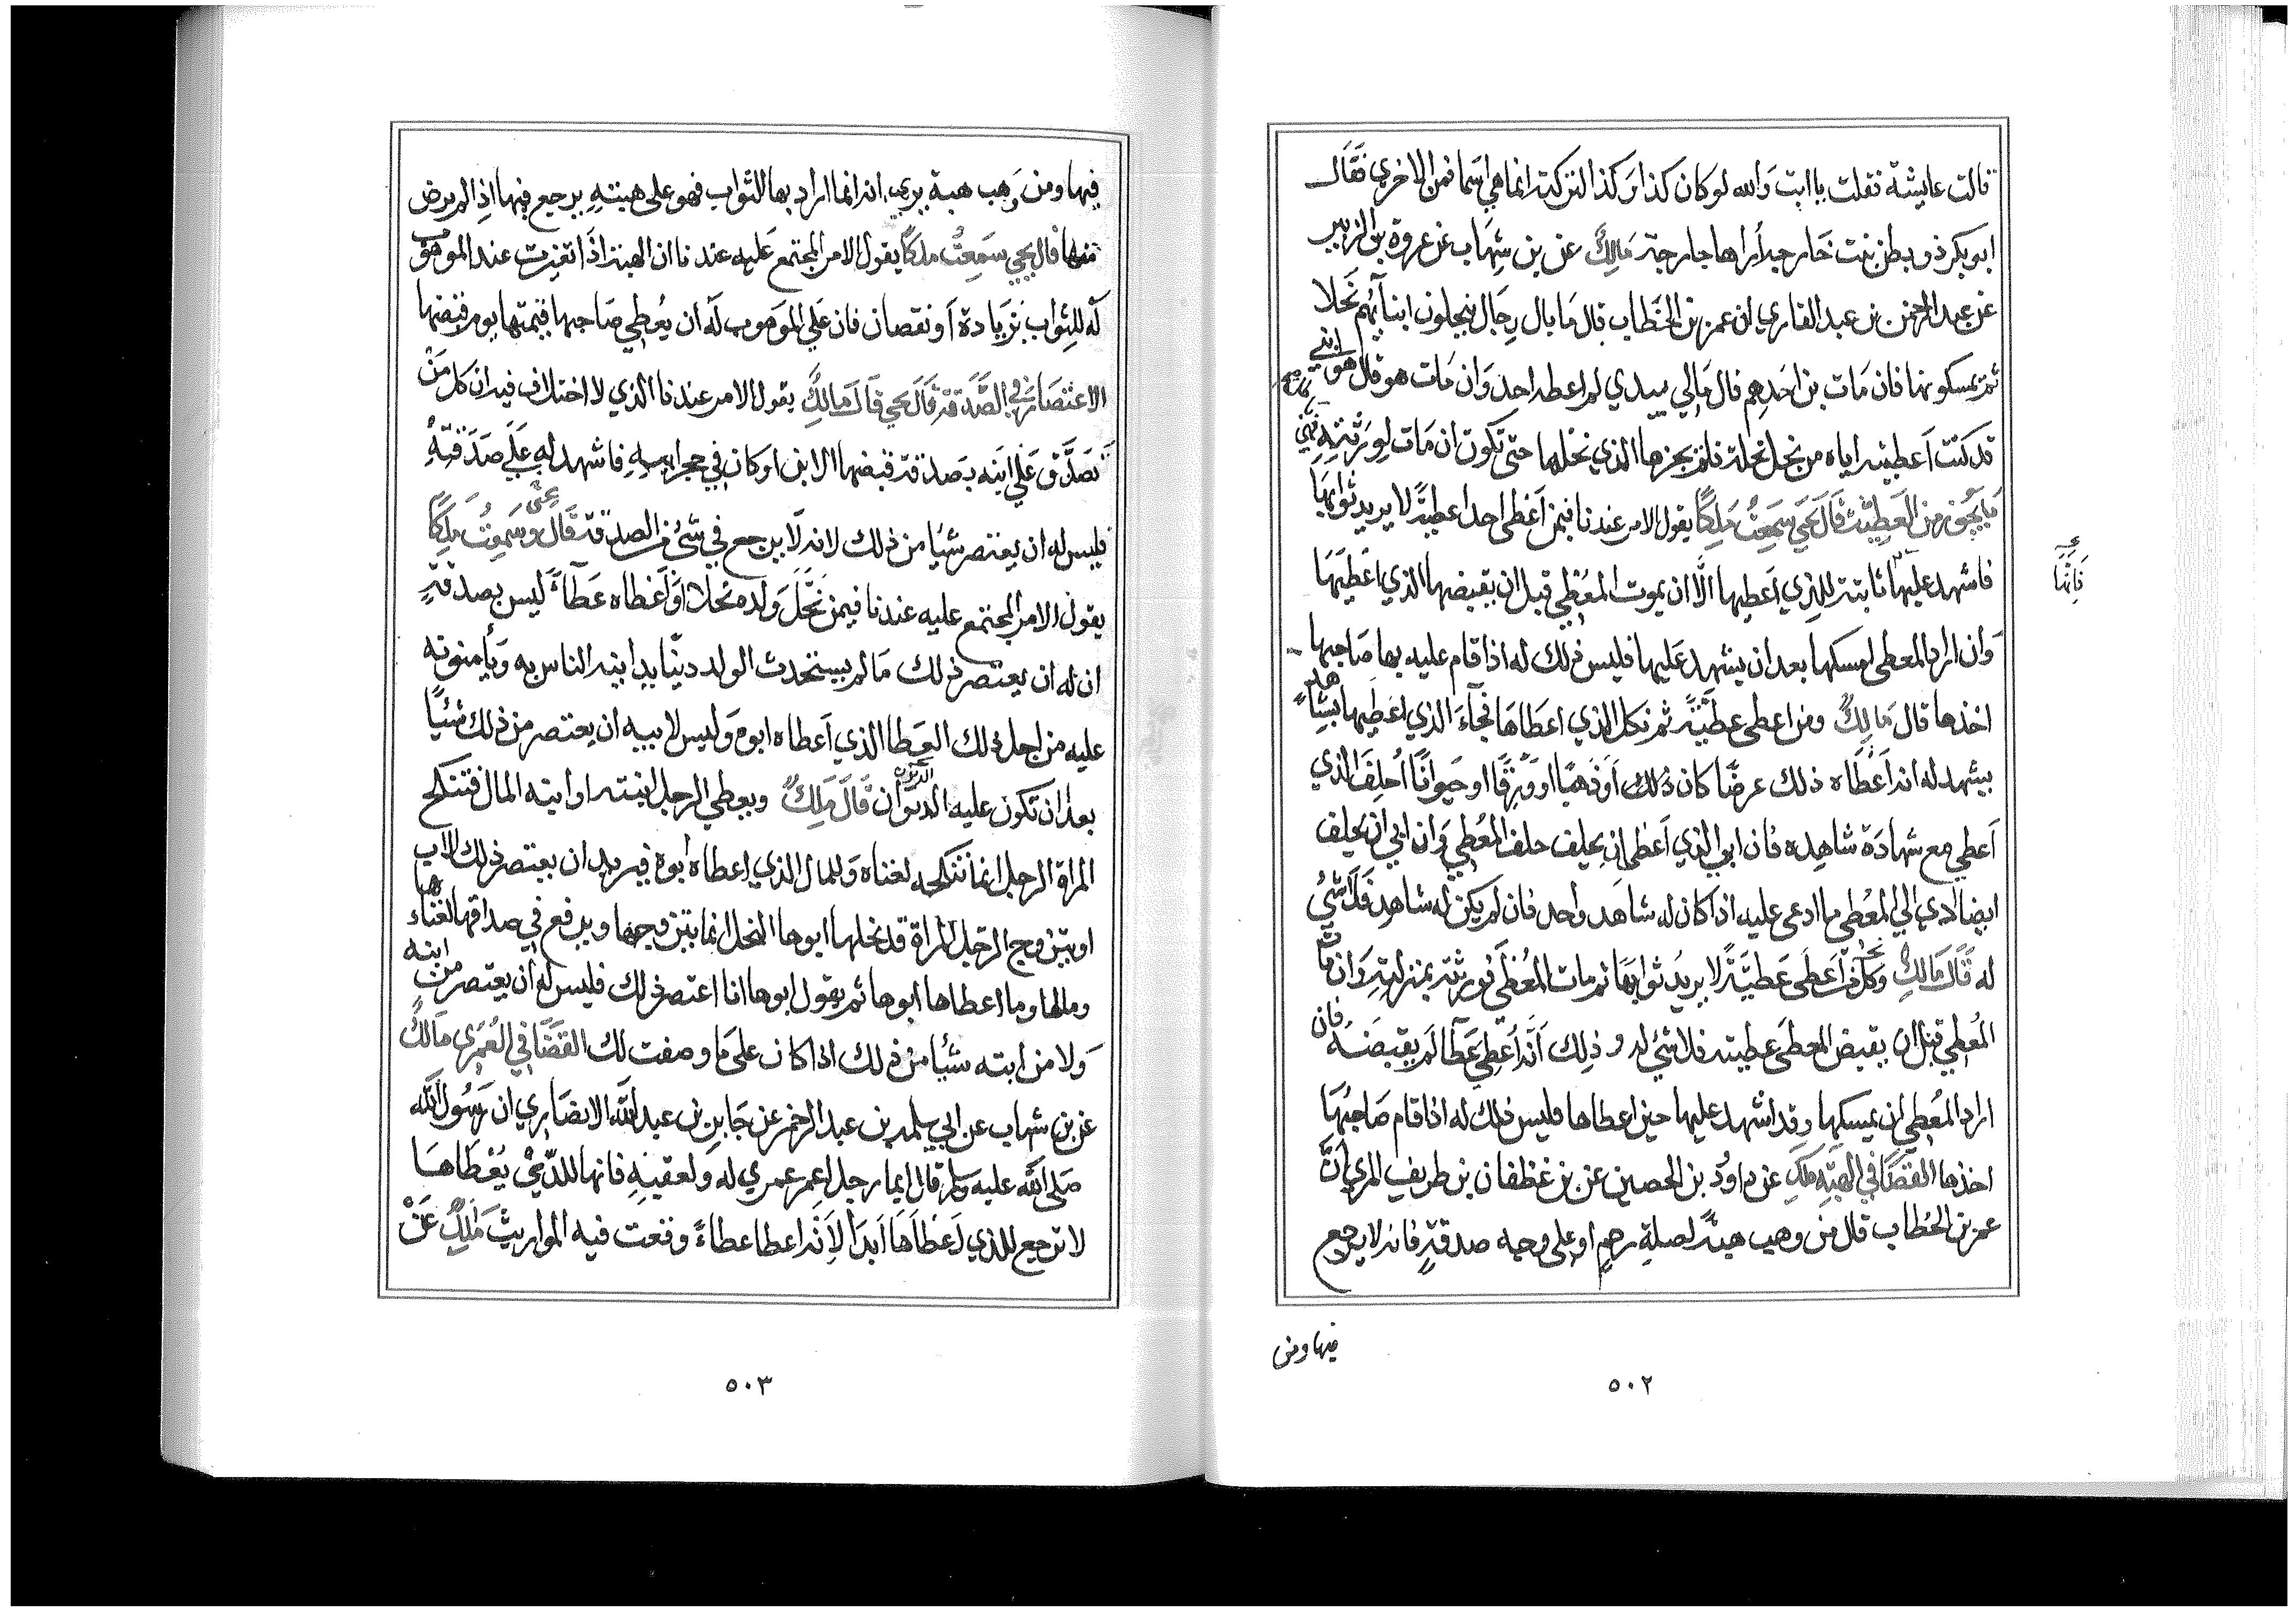 قالت عايشة فقلت يا ابت والله لو كان كذا وكذا لتركته انما هي اسما فمن الاخرى فقال
ابو بكر ذو بطن بنت خارجة أراها جارية مَالِكٌ عن بن شِهَاب عن عروة بن الزبير
عن عبد الرحمن بن عبد القاري ان عمر بن الخطاب قال مَا بال رجال ينحلون ابنآئهم نحلا
ثم يمسكونها فان مَات بن احَدِهِم قال مَالي بيدي لم اعطه احد وَان مَات هو قال هو لابني
قد كنت اَعطيته اياه من نحل نحلة فلم يحزها الذي نحلها حتى تكون ان مَات لورثته فهي
مَا يجوز من العَطِيَّة قَالَ يحيَى سَمِعْتُ مَلِكًا يقول الامر عندنا فيمن اَعْطى احدا عطيةً لا يريد ثوابهَا
فاشهد عليها ثابتة للذي اَعطيها الَّا ان يموت المُعْطِي قبل ان يقبضها الذي اعْطِيَهَا
فَانَّهَا
وَان اراد المعطى امسكها بعد ان يشهد عَليها فليس ذلك له اذا قام عليه بها صَاحبها
اخذها قال مَالِكٌ ومن اعطى عطيَّةً ثم نكل الذي اعطَاهَا فجآءَ الذي اعْطِيها بشاهد
يشهد له انه اَعْطَاه ذلك عرضًا كان ذلك اَو ذهبًا او وَرِقًا او حَيوانًا اُحلِفَ الذي
اَعطي مع شهادَة شاهِده فان ابى الذي اَعْطي ان يحلِف حلف المُعْطِي وَان ابى ان يحلف
ايضا ادى الى المُعْطي ما ادعى عليه اذا كان له شاهَد واحد فان لم يكن له شاهد فَلا شيْ
له قَالَ مَالِكٌ وَكل من اَعْطَى عَطيَّةً لا يريدُ ثوابهَا ثم مات المُعْطَى فورثته بمنزلتِهِ وَان مات
المُعْطِي قبل ان يقبض المعطَى عطيته فلا شئ له وذلِك اَنَّه اُعْطِيَ عَطَآ لم يقبضهُ فان
اراد المُعْطِي ان يمسكها وقد اشهد عليها حين اعطاها فليس ذلك له اذا قام صَاحبُهَا
اخذها القضَا في الهبَةِ مَلِكٌ عن داودَ بن الحصين عن بن غطفان بن طريف المري اَنَّ
عمر بن الخطاب قال من وهب هبةً لصلة رحمٍ او على وجه صدقةٍ فانه لا يرجع
فيها ومن
٥٠٢
فيها ومن وَهب هبة يرى انه انما اراد بها الثواب فهو على هبتهِ يرجع فيها اذا لم يرض
منها قال يحيى سَمِعْتُ ملكًا يقول الامر المجتمع عَليه عندنا ان الهبة اذَا تغيرت عند الموهوب
لَه للثواب بزيادة أو نقصان فان عَلى الموهوب لَه أن يُعْطي صَاحبها قيمتها يوم قبضها
الاعتصَار في الصَّدَقة قَالَ يحيى قَالَ مَالِكٌ يقول الامر عندنا الذي لا اختلاف فيه ان كل مَنْ
تصَدَّق عَلى ابَنه بصَدقة قبضها الابن او كان في حجر ابيه فاشهد له عَلَى صَدَقتِهِ
فليس له ان يعتصر شيئا من ذلك لانه لَا يرجع في شئ من الصدقة قَالَ يحيى وَسَمِعتُ مَلِكًا
يقول الامر المجتمع عليه عندنا فيمن نَحَلَ وَلده نُحْلا اَوْ اَعْطاه عَطآءً ليس بصدقةٍ
ان له ان يعتصر ذلك مَا لم يستحدث الولد دينًا يداينه الناس به وَيأمنونه
عليه من اجل ذلك العَطا الذي اَعطاه ابوه وَليس لابيه ان يعتصر من ذلك شَيْئًا
بعد ان تكون عليه الديون قَالَ مَلِكٌ ويعطي الرجل ابنته او ابنه المال فتنكح
المراة الرجل انما تنكحه لغناه وَللمال الذي اعطاه أبوه فيريد ان يعتصر ذلك الاب
او يتزوج الرجل المراة قد نحلها ابوها النحل انما يتزوجها ويرفع في صداقها لغناها
ومالها وما اعطاها ابوها ثم يقول ابوها انا اعتصر ذلك فليس له أن يعتصر من ابنه
وَلا من ابنته شيئًا من ذلك اذا كان على مَا وصفت لك القَضَا في العُمْرَى مَالِكٌ
عن بن شهاب عن ابي سلمه بن عبد الرحمن عن جَابِر بن عبد الله الانصَاري ان رَسُول اللَّه
صَلى اللَّه عليه وسلم قال ايما رجل اعمر عمرى له ولعقبهِ فانها للذي يُعْطَاهَا
لا ترجع للذي اَعْطَاهَا اَبدًا لِاَنه اعطا عطاءً وقعت فيه المواريث مَالِكٌ عَنْ
٥٠٣